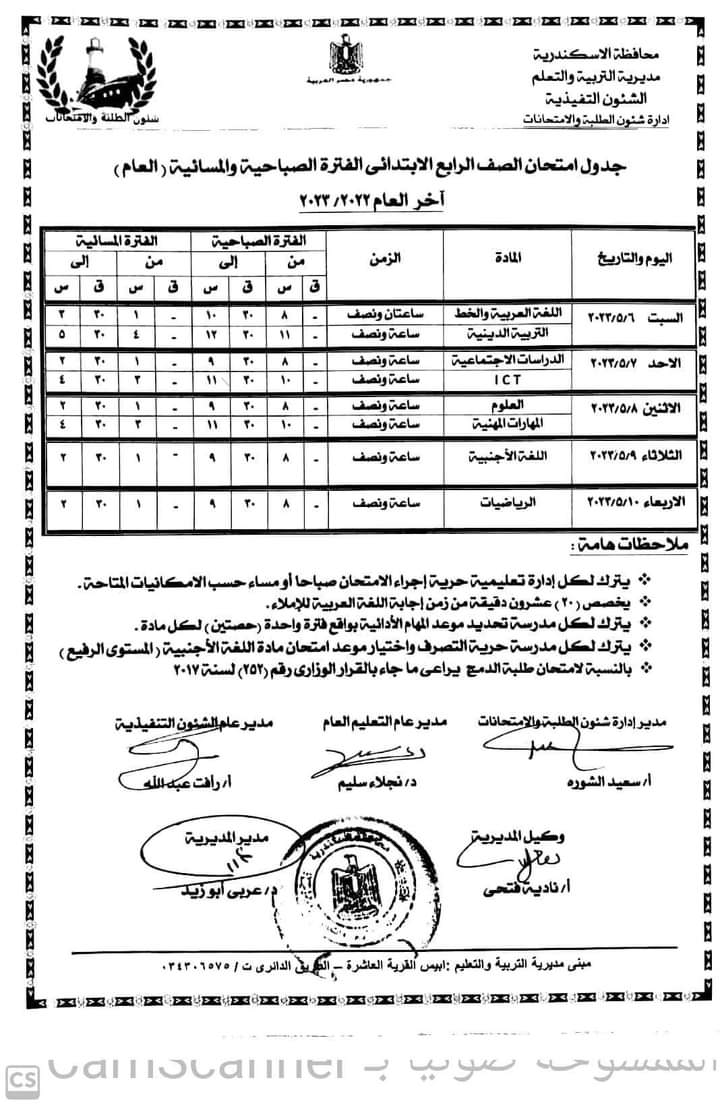 محافظة الاسكندرية
مديرية التربية والتعلم
الشئون التفيذية
إدارة شئون الطلبة والامتحانات
جمهورية مصر العربية
شئون الطلبة والامتحانات
جدول امتحان الصف الرابع الابتدائى الفترة الصباحية والمسائية (العام)
آخر العام ٢٠٢٢/٢٠٢٣
اليوم والتاريخ المادة الزمن الفترة الصباحية الفترة المسائية
من إلى من إلى
ق س ق س ق س ق س
السبت ٢٠٢٣/٥/٦ اللغة العربية والخط ساعتان ونصف - ٨ ٣٠ ١٠ - ١ ٣٠ ٣
التربية الدينية ساعة ونصف - ١١ ٣٠ ١٢ - ٤ ٣٠ ٥
الاحد ٢٠٢٣/٥/٧ الدراسات الاجتماعية ساعة ونصف - ٨ ٣٠ ٩ - ١ ٣٠ ٢
ICT ساعة ونصف - ١٠ ٣٠ ١١ - ٣ ٣٠ ٤
الاثنين ٢٠٢٣/٥/٨ العلوم ساعة ونصف - ٨ ٣٠ ٩ - ١ ٣٠ ٢
المهارات المهنية ساعة ونصف - ١٠ ٣٠ ١١ - ٣ ٣٠ ٤
الثلاثاء ٢٠٢٣/٥/٩ اللغة الأجنبية ساعة ونصف - ٨ ٣٠ ٩ - ١ ٣٠ ٢
الاربعاء ٢٠٢٣/٥/١٠ الرياضيات ساعة ونصف - ٨ ٣٠ ٩ - ١ ٣٠ ٢
ملاحظات هامة :
❖ يترك لكل إدارة تعليمية حرية إجراء الامتحان صباحا أو مساء حسب الامكانيات المتاحة.
❖ يخصص (٢٠) عشرون دقيقة من زمن إجابة اللغة العربية للإملاء.
❖ يترك لكل مدرسة تحديد موعد المهام الأدائية بواقع فترة واحدة (حصتين) لكل مادة.
❖ يترك لكل مدرسة حرية التصرف واختيار موعد امتحان مادة اللغة الأجنبية (المستوى الرفيع)
❖ بالنسبة لامتحان طلبة الدمج يراعى ما جاء بالقرار الوزارى رقم (٢٥٢) لسنة ٢٠١٧
مدير إدارة شئون الطلبة والامتحانات مدير عام التعليم العام مدير عام الشئون التنفيذية
أ/ سعيد الشوره د/ نجلاء سليم أ/ رأفت عبد الله
وكيل المديرية مدير المديرية
أ/ نادية فتحى د/ عربى أبو زيد
مبنى مديرية التربية والتعليم : ابيس القرية العاشرة – الطريق الدائرى ت / ٠٣٤٣٠٦٥٧٥
CS الممسوحة ضوئيا بـ CamScanner